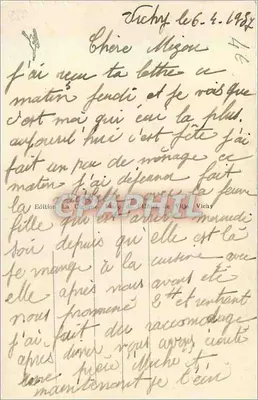 Vichy le 6.4.1937
46
Chère Mizou
j'ai reçu ta lettre ce
matin jeudi et je vois que
c'est moi qui écris la plus.
aujourd'hui c'est fête j'ai
fait un peu de ménage ce
matin j'ai déjeuner fait
la avec la jeune
fille qui est arrivé mercredi
soir depuis qu'elle est là
je mange à la cuisine avec
elle après nous avons été
nous promené et rentrant
j'ai fait du raccomodage
après diner nous avons écouté
une pièce
maintenant je t'écris
CARTAPHIL
Edition Vichy